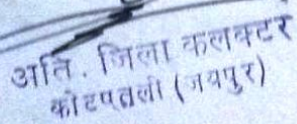 अति. जिला कलक्टर
कोटपतली (जयपुर)